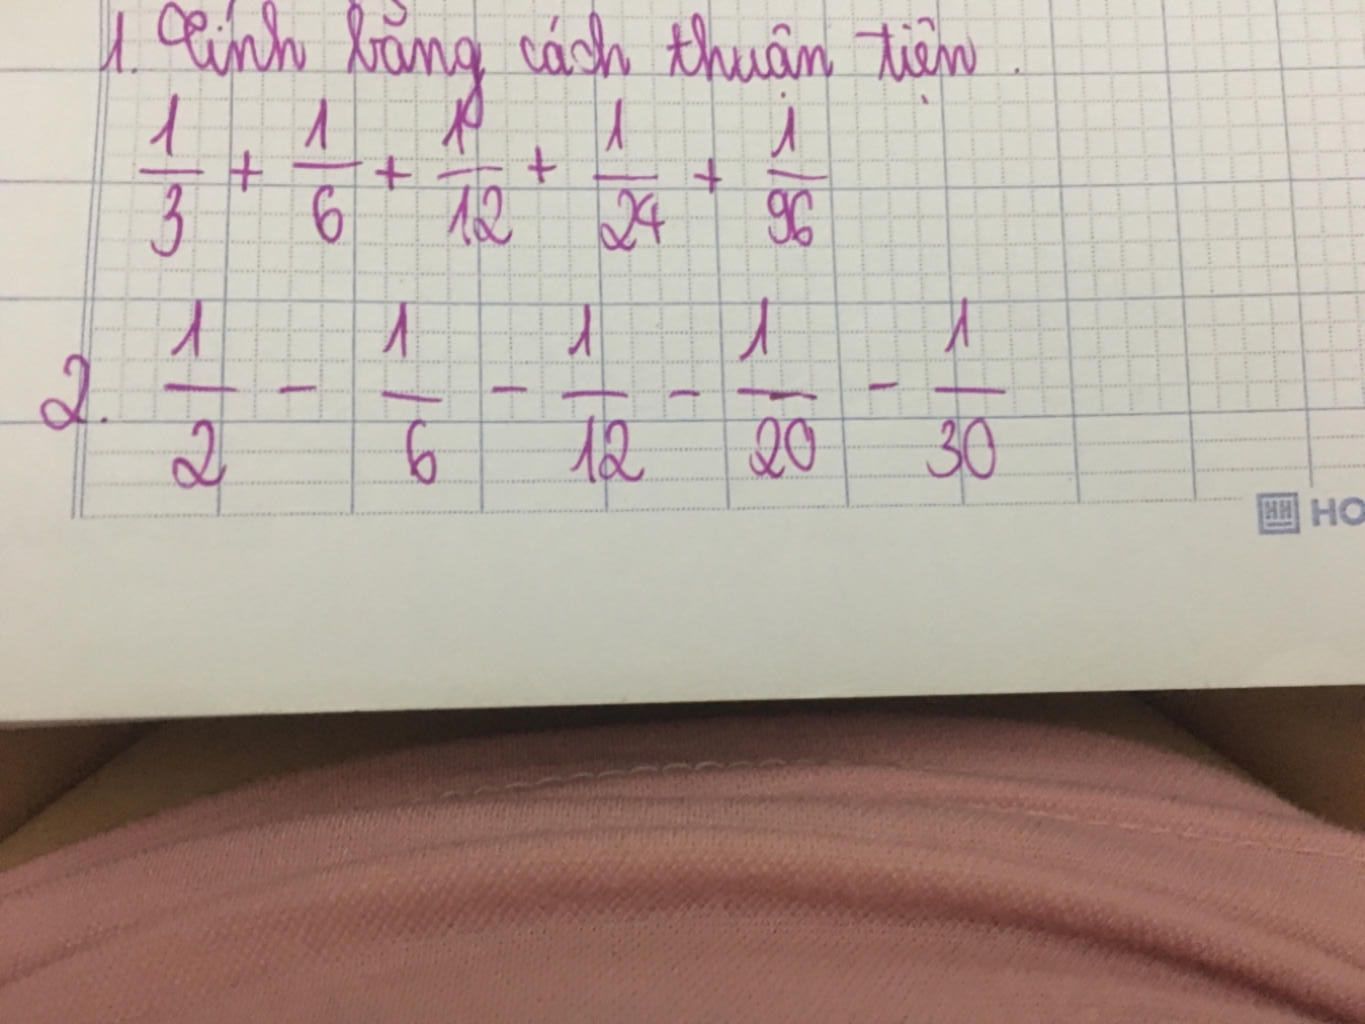 1. Tính bằng cách thuận tiện.
1/3 + 1/6 + 1/12 + 1/24 + 1/96
2. 1/2 - 1/6 - 1/12 - 1/20 - 1/30
HH HO